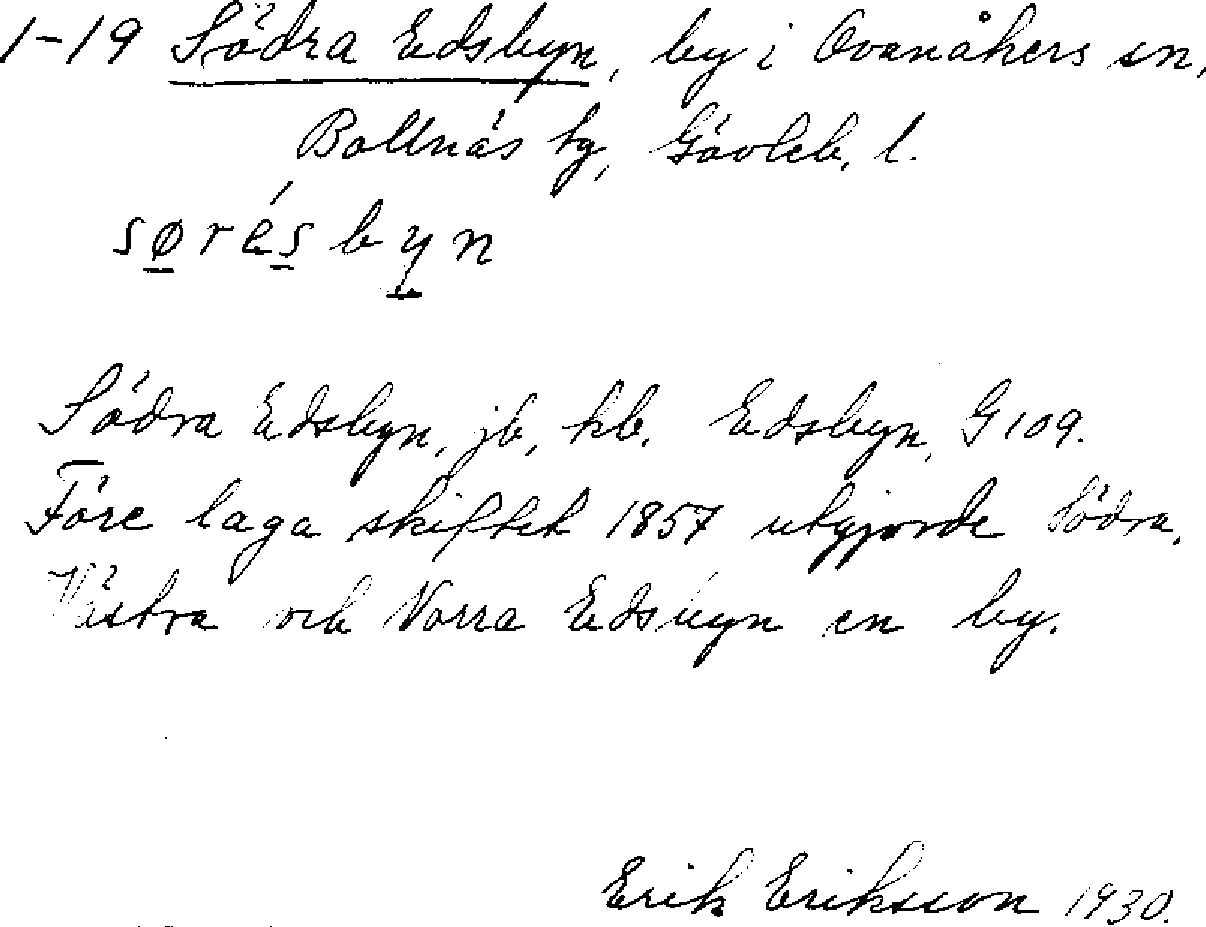 1-19 Södra Edsbyn, by i Ovanåkers sn,
Bollnäs tg, Gävleb. l.
sørésbyn
Södra Edsbyn, jb, kb. Edsbyn, G 109.
Före laga skiftet 1857 utgjorde Södra,
Västra och Norra Edsbyn en by.
Erik Eriksson 1930.